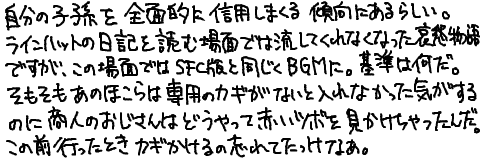 自分の子孫を全面的に信用しまくる傾向にあるらしい。
ラインハットの日記を読む場面では流してくれなくなった哀愁物語
ですが、この場面ではSFC版と同じくBGMに。基準は何だ。
そもそもあのほこらは専用のカギがないと入れなかった気がする
のに商人のおじさんはどうやって赤いツボを見かけちゃったんだ。
この前行ったときカギかけるの忘れてたっけなあ。